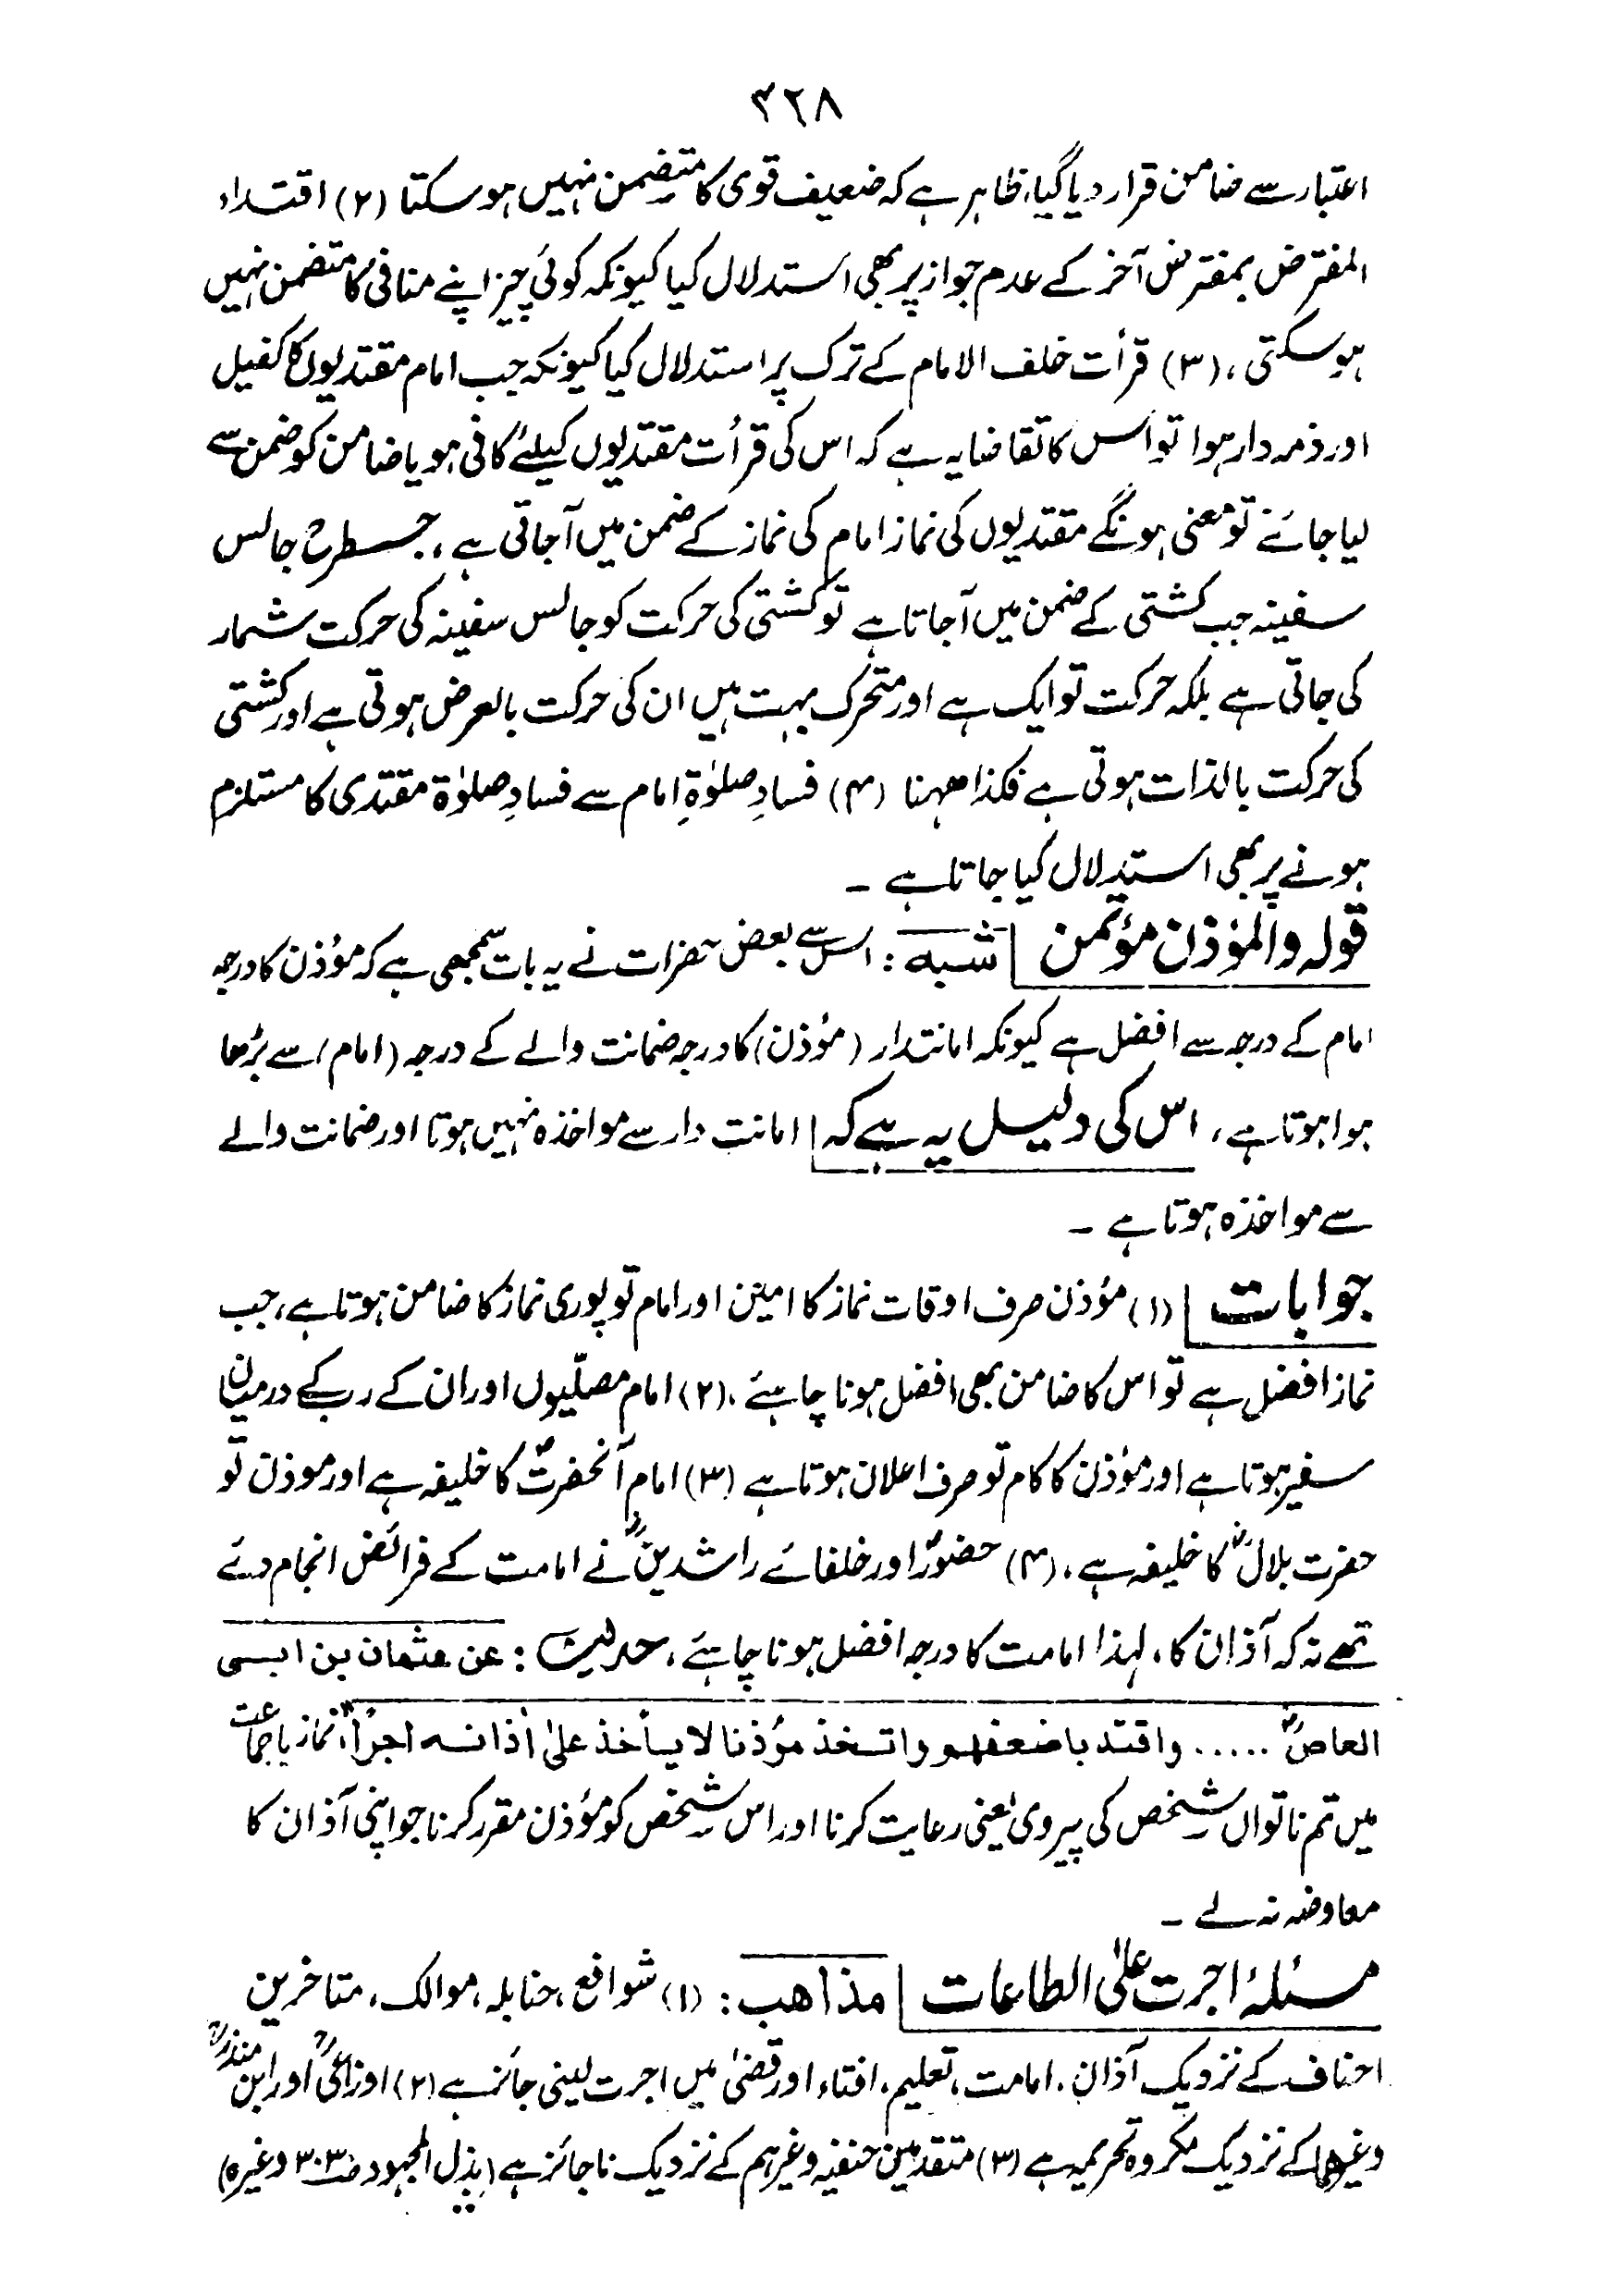 ۴۲۸
اعتبار سے ضامن قرار دیا گیا، ظاہر ہے کہ ضعیف قوی کا متضمن نہیں ہو سکتا (۲) اقتداء
المفترض بمفترض آخر کے عدم جواز پر بھی استدلال کیا کیونکہ کوئی چیز اپنے منافی کا متضمن نہیں
ہو سکتی، (۳) قرأت خلف الامام کے ترک پر استدلال کیا کیونکہ جب امام مقتدیوں کا کفیل
اور ذمہ دار ہوا تو اس کا تقاضا یہ ہے کہ اس کی قرأت مقتدیوں کیلئے کافی ہو یا ضامن کو ضمن سے
لیا جائے تو معنی ہونگے مقتدیوں کی نماز امام کی نماز کے ضمن میں آجاتی ہے، جسطرح جالس
سفینہ جب کشتی کے ضمن میں آجاتا ہے تو کشتی کی حرکت کو جالس سفینہ کی حرکت شمار
کی جاتی ہے بلکہ حرکت تو ایک ہے اور متحرک بہت ہیں ان کی حرکت بالعرض ہوتی ہے اور کشتی
کی حرکت بالذات ہوتی ہے فکذا ھہنا (۴) فسادِ صلوٰۃِ امام سے فسادِ صلوٰۃ مقتدی کا مستلزم
ہونے پر بھی استدلال کیا جاتا ہے ۔
قولہ والمؤذن مؤتمن شبہ : اس سے بعض حضرات نے یہ بات سمجھی ہے کہ مؤذن کا درجہ
امام کے درجہ سے افضل ہے کیونکہ امانتدار (مؤذن) کا درجہ ضمانت والے کے درجہ (امام) سے بڑھا
ہوا ہوتا ہے، اس کی دلیل یہ ہے کہ امانت دار سے مواخذہ نہیں ہوتا اور ضمانت والے
سے مواخذہ ہوتا ہے ۔
جوابات (۱) مؤذن صرف اوقات نماز کا امین اور امام تو پوری نماز کا ضامن ہوتا ہے، جب
نماز افضل ہے تو اس کا ضامن بھی افضل ہونا چاہئے، (۲) امام مصلّیوں اور ان کے رب کے درمیان
سفیر ہوتا ہے اور مؤذن کا کام تو صرف اعلان ہوتا ہے (۳) امام آنحضرتؐ کا خلیفہ ہے اور موذن تو
حضرت بلالؓ کا خلیفہ ہے، (۴) حضورؐ اور خلفائے راشدینؓ نے امامت کے فرائض انجام دئے
تھے نہ کہ آذان کا، لہذا امامت کا درجہ افضل ہونا چاہئے، حدیث : عن عثمان بن ابی
العاصؓ ..... واقتد باضعفهم واتخذ مؤذنا لا یأخذ علیٰ أذانه اجرًا، نماز باجماعت
میں تم ناتواں شخص کی پیروی یعنی رعایت کرنا اور اس شخص کو مؤذن مقرر کرنا جو اپنی آذان کا
معاوضہ نہ لے ۔
مسئلۂ اجرت علی الطاعات مذاھب : (۱) شوافع، حنابلہ، موالک، متاخرین
احناف کے نزدیک آذان، امامت، تعلیم، افتاء اور قضیٰ میں اجرت لینی جائز ہے (۲) اوزاعیؒ اور ابن منذرؒ
وغیرہما کے نزدیک مکروہ تحریمہ ہے (۳) متقدمین حنفیہ وغیرہم کے نزدیک ناجائز ہے (بذل المجہود ص۳۰۳ وغیرہ)